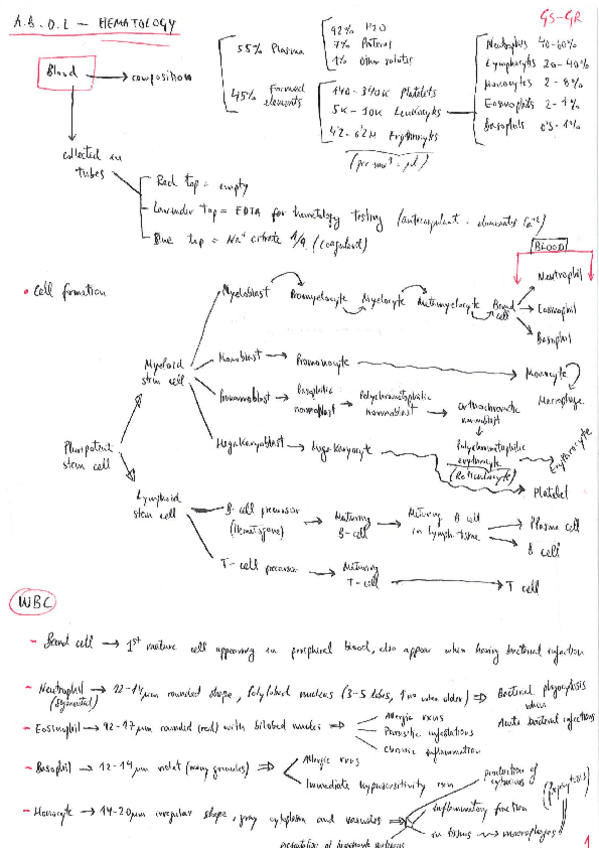 A.B.O.L - HEMATOLOGY
GS-GR
Blood → composition
55% Plasma
92% H2O
7% Proteins
1% Other solutes
45% Formed elements
140-340K Platelets
5K-10K Leukocytes
4'2-6'2M Erythrocytes
(per mm³ - µl)
Neutrophils 40-60%
Lymphocytes 20-40%
Monocytes 2-8%
Eosinophils 2-4%
Basophils 0'5-1%
collected in tubes
Red top = empty
Lavender top = EDTA for hematology testing (anticoagulant - eliminates Ca+2)
Blue top = Na+ citrate 1/9 (Coagulant)
BLOOD
• Cell formation
Pluripotent stem cell
Myeloid stem cell
Myeloblast → Promyelocyte → Myelocyte → Metamyelocyte → Band cell
Neutrophil
Eosinophil
Basophil
Monoblast → Promonocyte → Monocyte
Macrophage
Pronormoblast → Basophilic normoblast → Polychromatophilic normoblast → Orthochromatic normoblast
Polychromatophilic erythrocyte → Erythrocyte
(Reticulocyte)
Megakaryoblast → Megakaryocyte → Platelet
Lymphoid stem cell
B-cell precursor (Hematogone) → Maturing B-cell → Maturing B cell in lymph tissue
Plasma cell
B cell
T-cell precursor → Maturing T-cell → T cell
WBC
- Band cell → 1st mature cell appearing in peripheral blood, also appear when having bacterial infection
- Neutrophil (segmented) → 12-14µm rounded shape, Polylobed nucleus (3-5 lobes, when older) ⇒ Bacterial phagocytosis
Acute bacterial infections
- Eosinophil → 12-17µm rounded (red) with bilobed nuclei ⇒
Allergic rxns
Parasitic infestations
Chronic inflammation
- Basophil → 12-14µm violet (many granules) ⇒
Allergic rxns
Immediate hypersensitivity rxn
- Monocyte → 14-20µm irregular shape, gray cytoplasm and vacuoles
production of cytokines
inflammatory
in tissues → macrophages
1